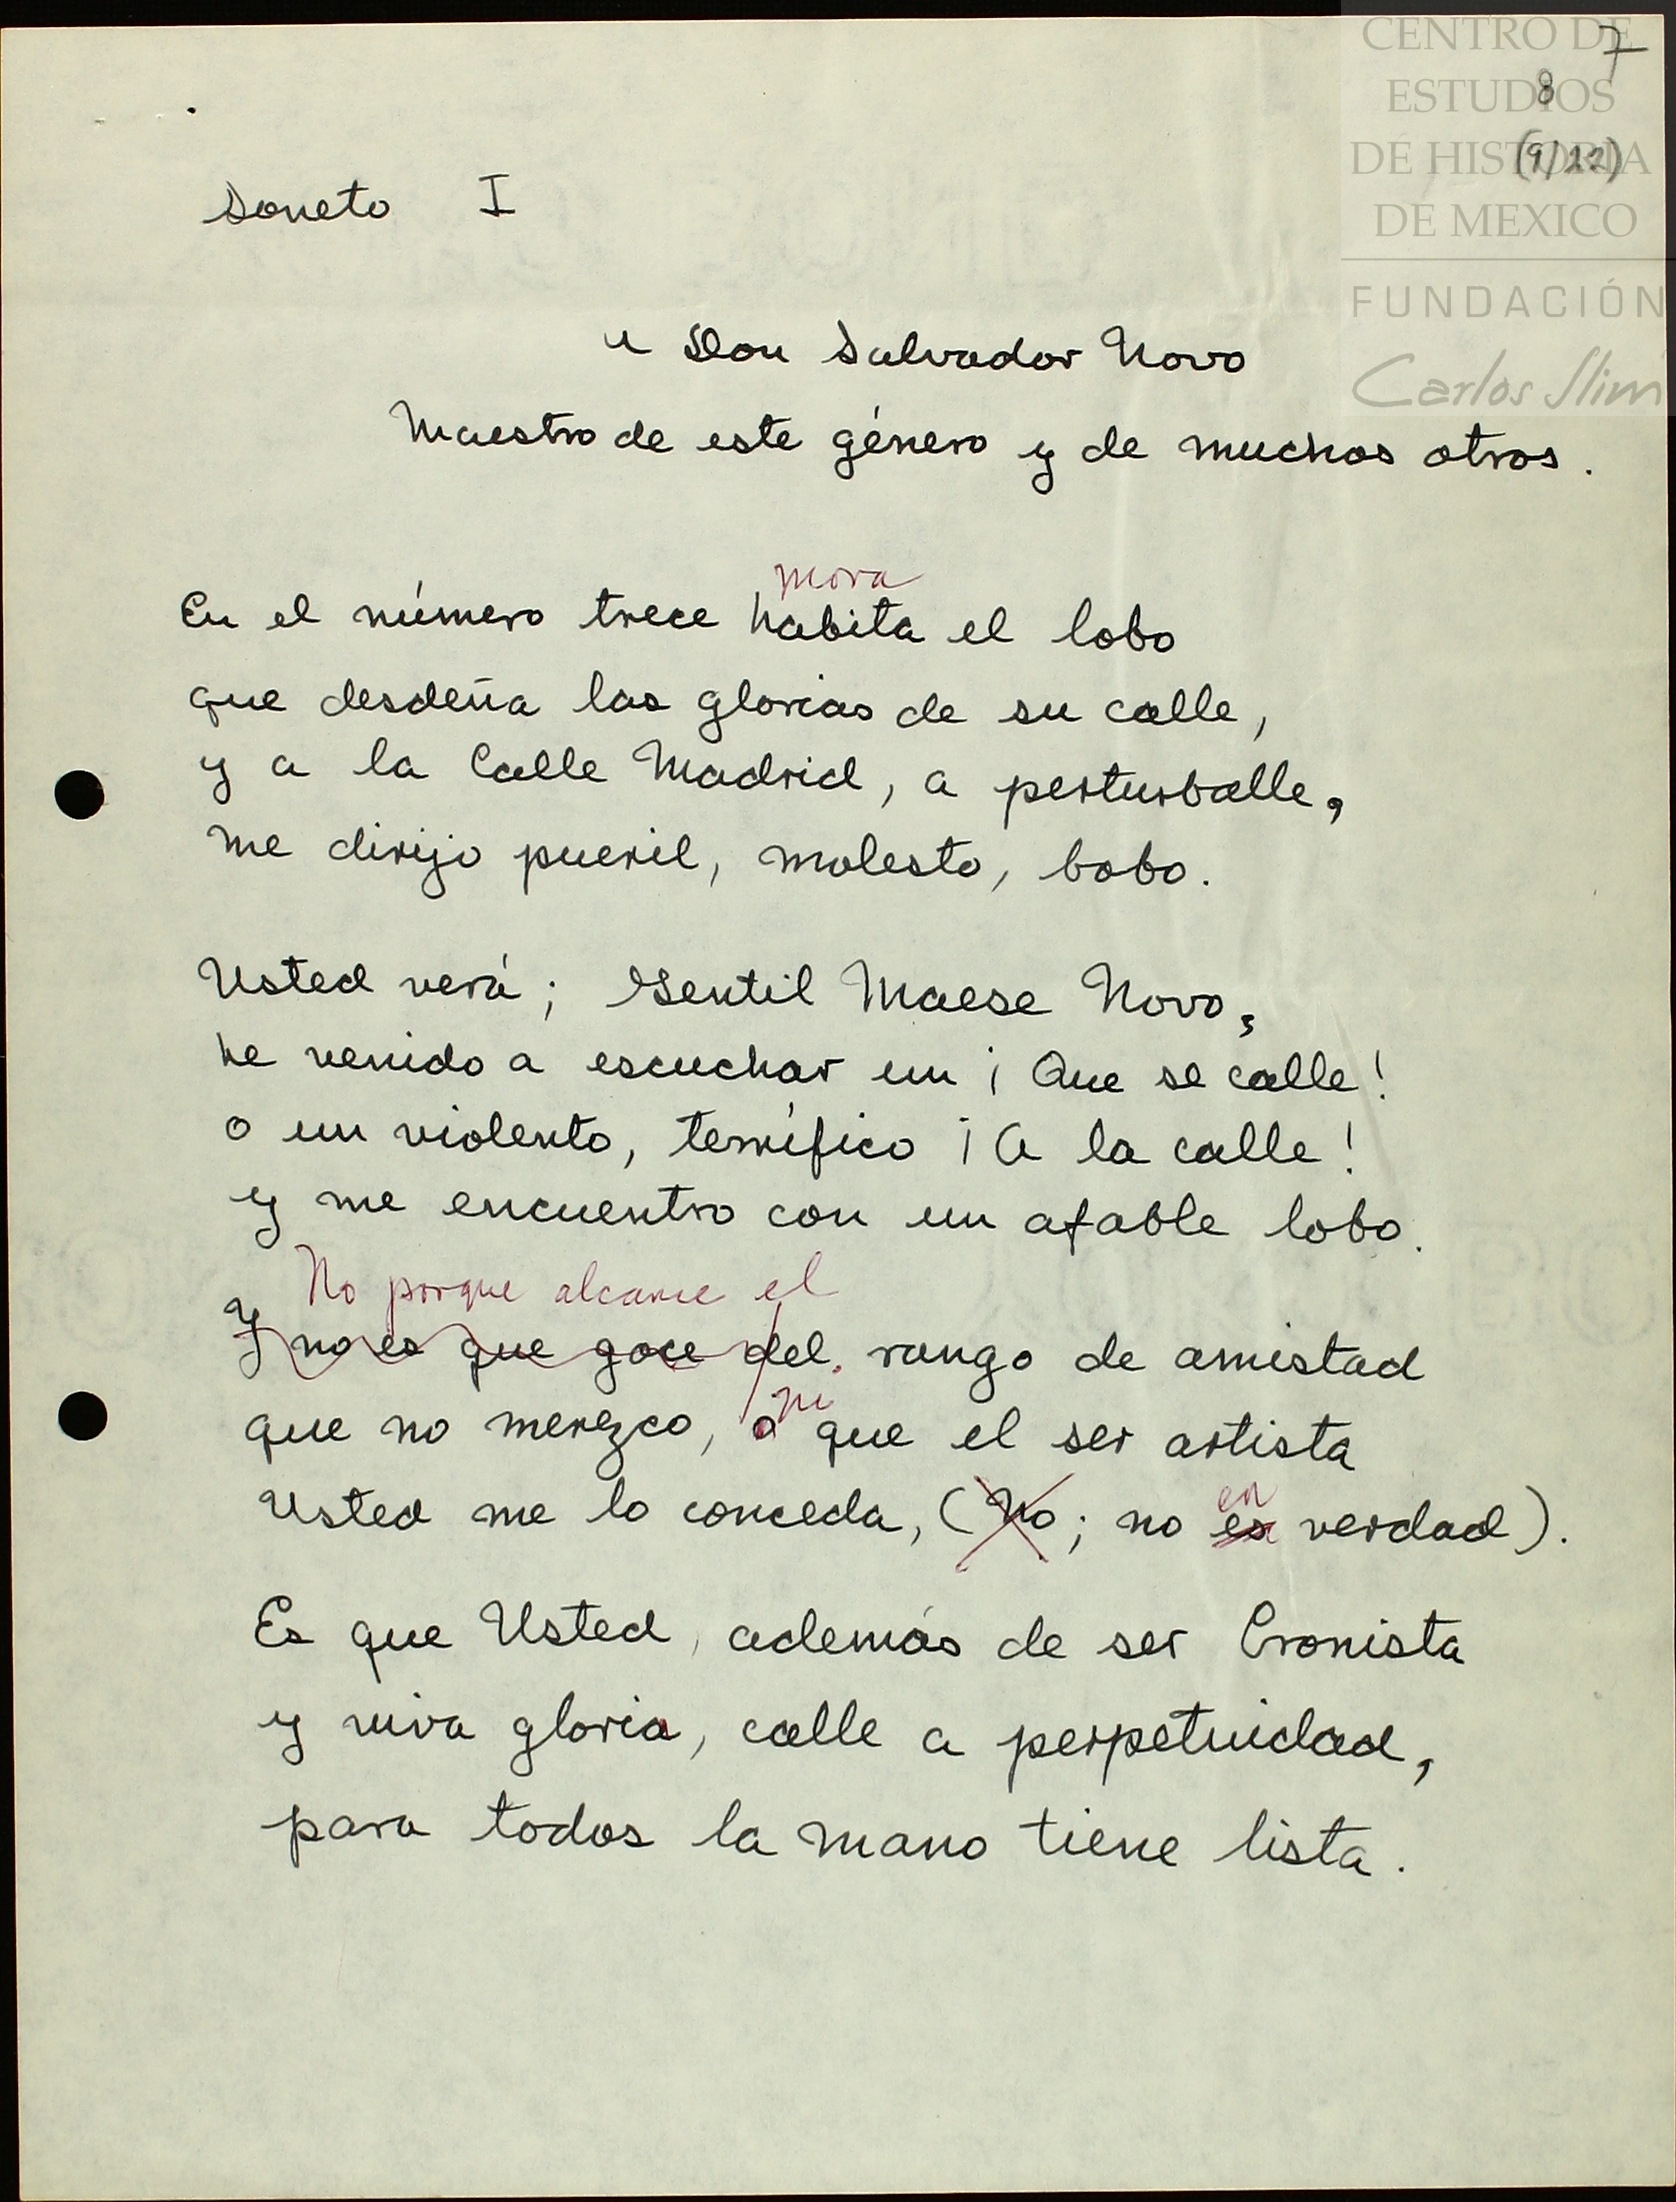 CENTRO DE
ESTUDIOS
DE HISTORIA
DE MEXICO
FUNDACIÓN
Carlos Slim
7
8
(9/22)
Soneto I
a Don Salvador Novo
Maestro de este género y de muchos otros.
mora
En el número trece habita el lobo
que desdeña las glorias de su calle,
y a la Calle Madrid, a perturballe,
me dirijo pueril, molesto, bobo.
Usted verá; Gentil Maese Novo,
he venido a escuchar un ¡Que se calle!
o un violento, terrífico ¡A la calle!
y me encuentro con un afable lobo.
No porque alcance el
Y no es que goce del rango de amistad
ni
que no merezco, o que el ser artista
en
Usted me lo conceda, (No; no es verdad).
Es que Usted, además de ser Cronista
y viva gloria, calle a perpetuidad,
para todos la mano tiene lista.